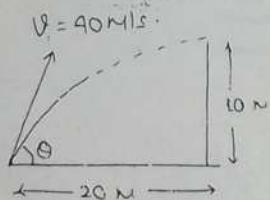 V = 40 M/s.
10 M
θ
20 M